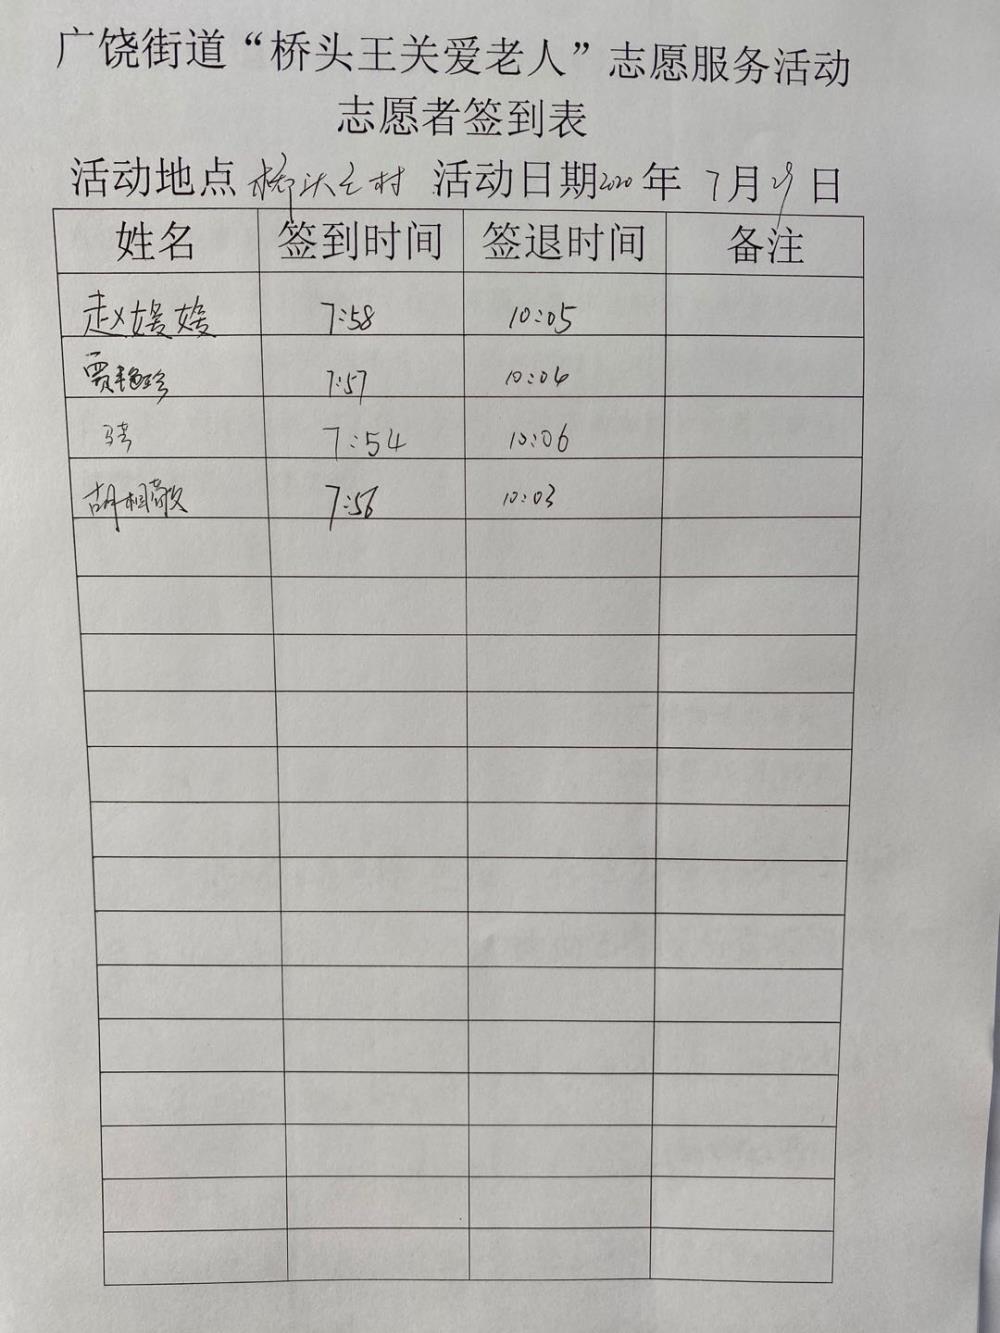 广饶街道“桥头王关爱老人”志愿服务活动
志愿者签到表
活动地点 桥头王村 活动日期2020年 7月29日
姓名 签到时间 签退时间 备注
赵媛媛 7:58 10:05
贾艳珍 7:57 10:04
7:54 10:06
胡相敬 7:56 10:03